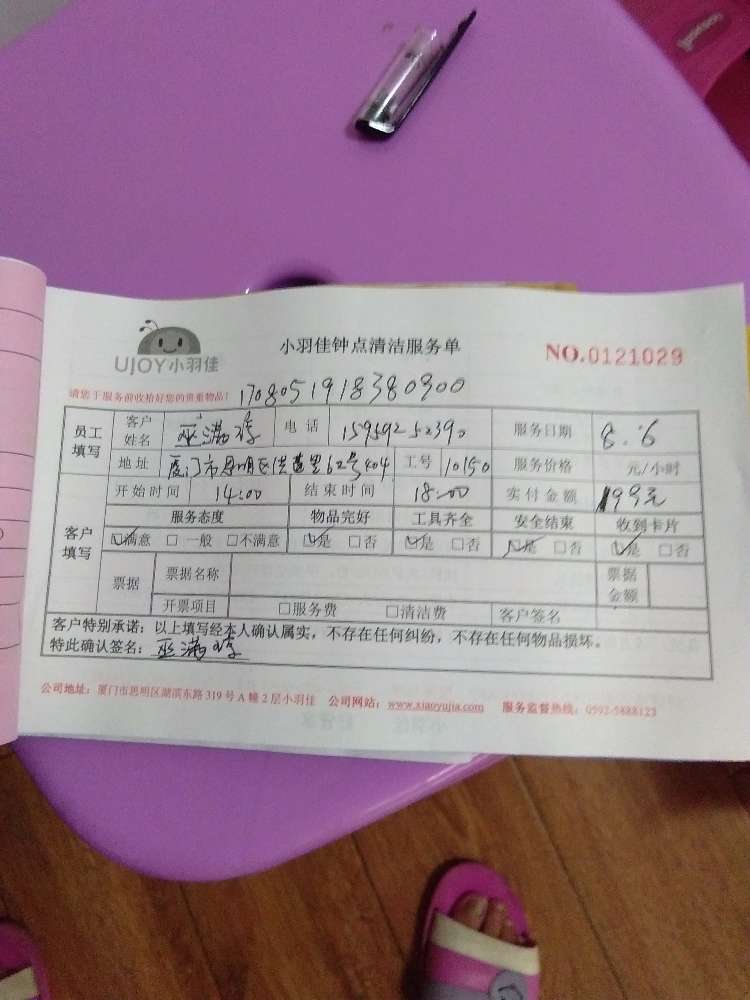 UJOY小羽佳
小羽佳钟点清洁服务单
NO.0121029
请您于服务前收拾好您的贵重物品!
1708051918380900
员工填写 客户姓名 巫满 电话 15959252390 服务日期 8.6
地址 厦门市思明区 里62号404 工号 10150 服务价格 元/小时
开始时间 14:00 结束时间 18:00 实付金额 199元
客户填写 服务态度 物品完好 工具齐全 安全结束 收到卡片
☑满意 □一般 □不满意 ☑是 □否 ☑是 □否 ☑是 □否 ☑是 □否
票据 票据名称 票据金额
开票项目 □服务费 □清洁费 客户签名
客户特别承诺：以上填写经本人确认属实，不存在任何纠纷，不存在任何物品损坏。
特此确认签名：巫满
公司地址：厦门市思明区湖滨东路319号A幢2层小羽佳 公司网站：www.xiaoyujia.com 服务监督热线：0592-5888123